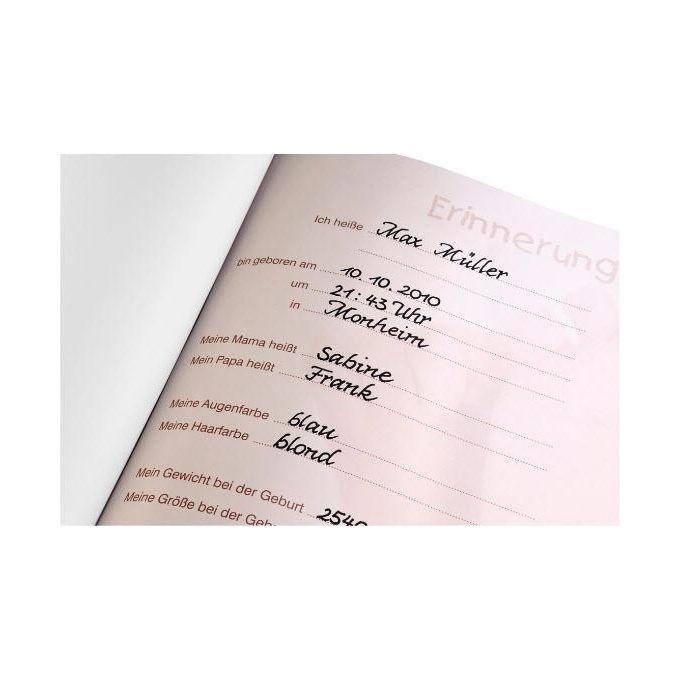 Erinnerung
Ich heiße Max Müller
bin geboren am 10. 10. 2010
um 21:43 Uhr
in Monheim
Meine Mama heißt Sabine
Mein Papa heißt Frank
Meine Augenfarbe blau
Meine Haarfarbe blond
Mein Gewicht bei der Geburt 2540
Meine Größe bei der Gebu